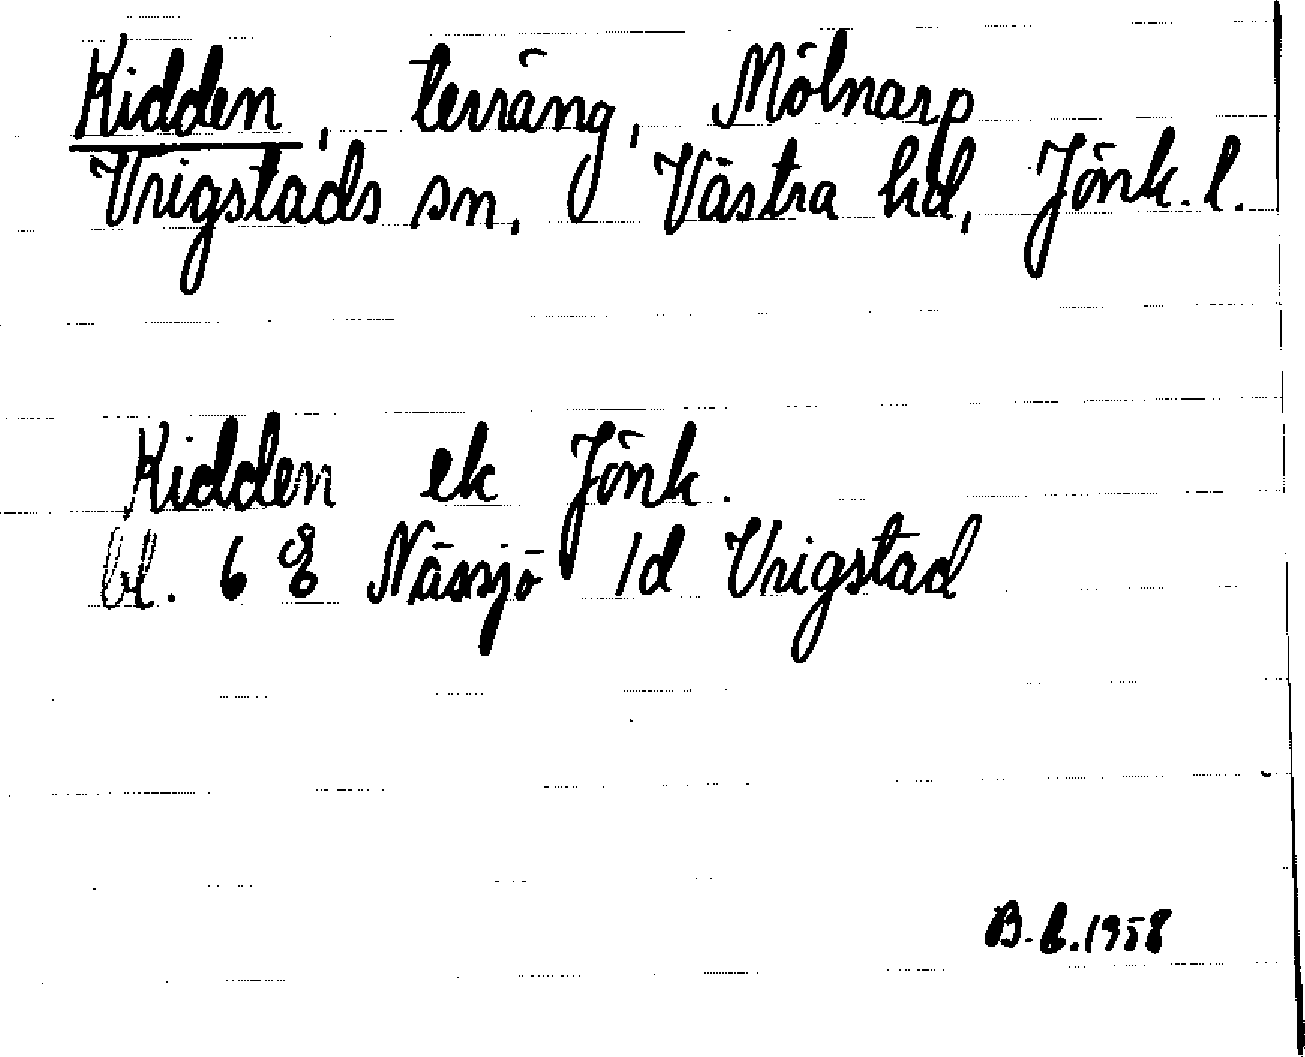 Kidden, terräng, Mölnarp
Vrigstads sn, Västra hd, Jönk. l.
Kidden ek Jönk.
bl. 6 E Nässjö 1d Vrigstad
1958